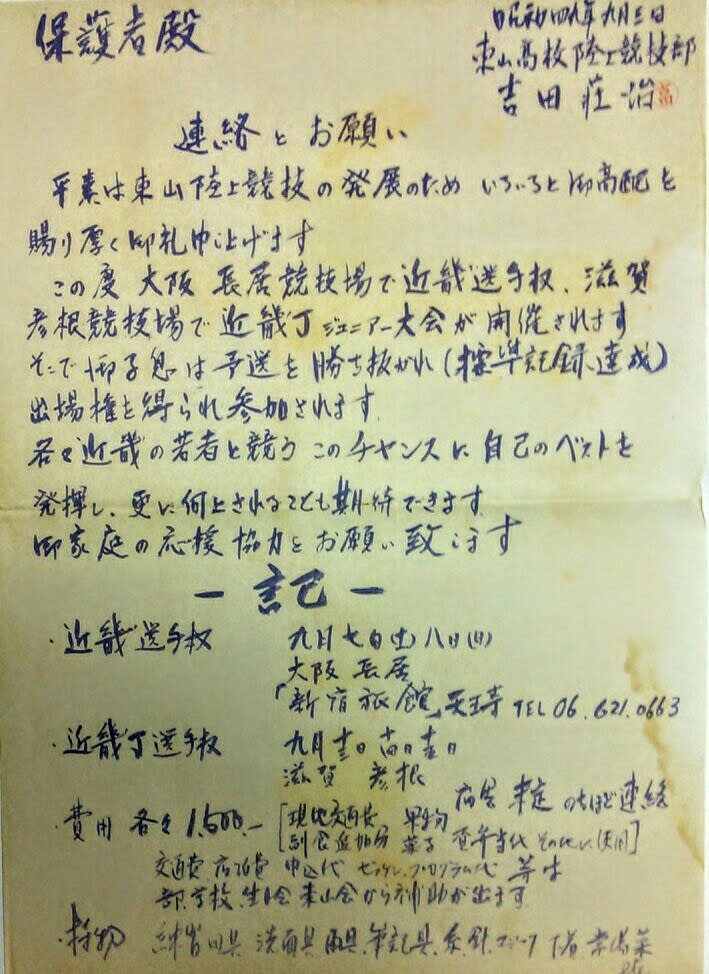 保護者殿
昭和四九年九月三日
東山高校陸上競技部
吉田荘治
連絡とお願い
平素は東山陸上競技の発展のため いろいろと御高配を
賜り厚く御礼申し上げます
この度 大阪 長居競技場で近畿選手权、滋賀
彦根競技場で近畿Jr ジュニアー大会が開催されます
そこで御子息は予選を勝ち抜かれ(標準記録達成)
出場権を得られ参加されます
各々近畿の若者と競うこのチャンスに自己のベストを
発揮し、更に向上されることも期待できます
御家庭の応援協力をお願い致します
－記－
・近畿選手权 九月七日(土)八日(日)
大阪 長居
「新宿旅館」天王寺 TEL 06.621.0663
・近畿Jr選手权 九月
滋賀 彦根
宿舎 未定 のちほど連絡
・費用 各々 1,500.－ [現地交通費、果物
副食追加分 菓子 昼弁当代 その他に使用]
交通費 宿泊費 申込代 プログラム代 等は
部、学校、生徒会 東山会から補助が出ます
・持物 練習用具 洗面具 雨具 筆記具